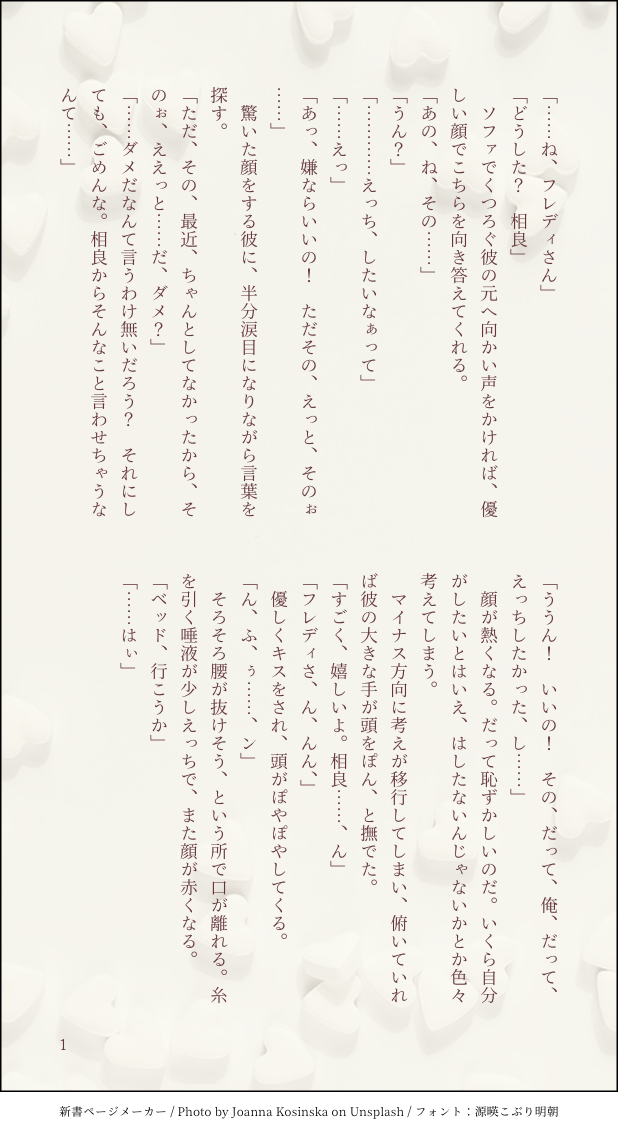 「……ね、フレディさん」
「どうした？　相良」
　ソファでくつろぐ彼の元へ向かい声をかければ、優
しい顔でこちらを向き答えてくれる。
「あの、ね、その……」
「うん？」
「…………えっち、したいなぁって」
「……えっ」
「あっ、嫌ならいいの！　ただその、えっと、そのぉ
……」
　驚いた顔をする彼に、半分涙目になりながら言葉を
探す。
「ただ、その、最近、ちゃんとしてなかったから、そ
のぉ、ええっと……だ、ダメ？」
「……ダメだなんて言うわけ無いだろう？　それにし
ても、ごめんな。相良からそんなこと言わせちゃうな
んて……」
「ううん！　いいの！　その、だって、俺、だって、
えっちしたかった、し……」
　顔が熱くなる。だって恥ずかしいのだ。いくら自分
がしたいとはいえ、はしたないんじゃないかとか色々
考えてしまう。
　マイナス方向に考えが移行してしまい、俯いていれ
ば彼の大きな手が頭をぽん、と撫でた。
「すごく、嬉しいよ。相良……、ん」
「フレディさ、ん、んん、」
　優しくキスをされ、頭がぽやぽやしてくる。
「ん、ふ、ぅ……、ン」
　そろそろ腰が抜けそう、という所で口が離れる。糸
を引く唾液が少しえっちで、また顔が赤くなる。
「ベッド、行こうか」
「……はぃ」
1
新書ページメーカー / Photo by Joanna Kosinska on Unsplash / フォント：源暎こぶり明朝